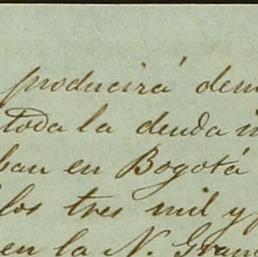 producirá
toda la deuda
ban en Bogotá
los tres mil y
en la N. Gran